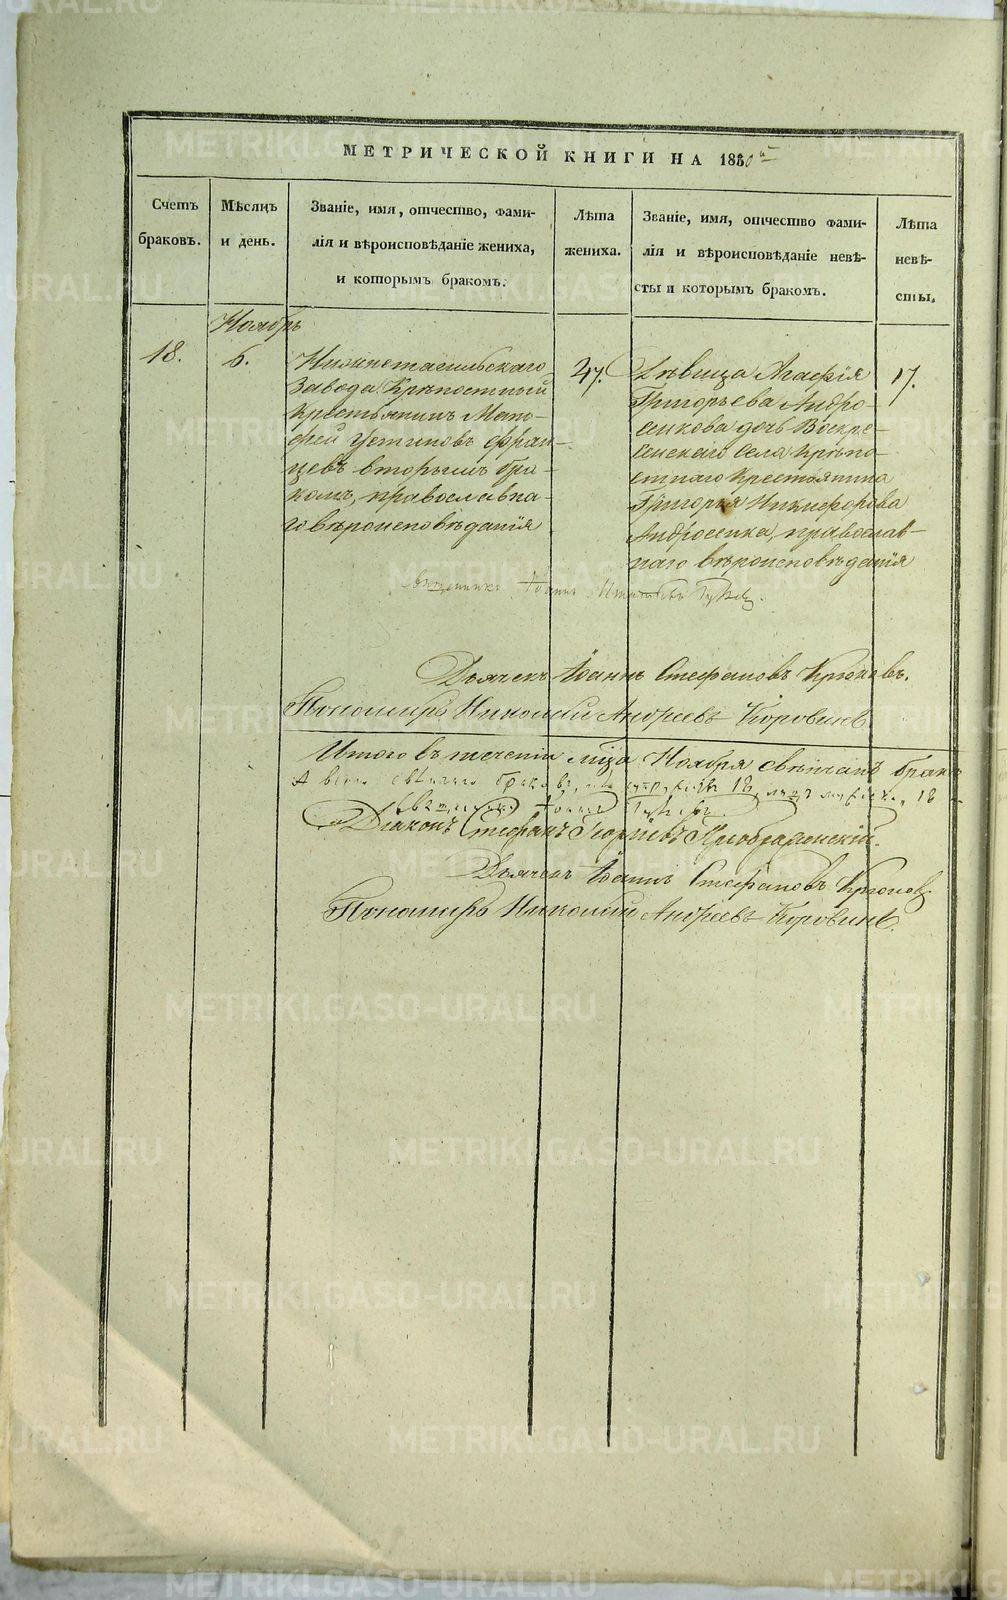 МЕТРИЧЕСКОЙ КНИГИ НА 1850й
Счетъ
браковъ.
Мѣсяцъ
и день.
Званіе, имя, отчество, фами-
лія и вѣроисповѣданіе жениха,
и которымъ бракомъ.
Лѣта
жениха.
Званіе, имя, отчество фами-
лія и вѣроисповѣданіе невѣ-
сты и которымъ бракомъ.
Лѣта
невѣ-
сты.
Ноябрь
18.
6.
Нижнетагильскаго
Завода Крѣпостный
Крестьянинъ Мат-
фей Устиновъ Фран-
цевъ вторымъ бра-
комъ, православна-
го вѣроисповѣданія
47.
Дѣвица Агафія
Григорьева Андро-
сенкова дочь Воскре-
сенскаго Села Крѣпо-
стнаго Крестьянина
Григорья Никифорова
Андросенка, православ-
наго вѣроисповѣданія
17.
Священникъ Іоаннъ
Дьячекъ Іоаннъ Стефановъ Крюковъ.
Пономарь Николай Андреевъ Коровинъ
Итого въ теченіи мѣсяца Ноября свѣнчанъ бракъ
А всего браковъ, 18, 18
Священникъ Іоаннъ
Діаконъ Стефанъ Георгіевъ Преображенскій.
Дьячекъ Іоаннъ Стефановъ Крюковъ
Пономарь Николай Андреевъ Коровинъ.
METRIKI.GASO-URAL.RU